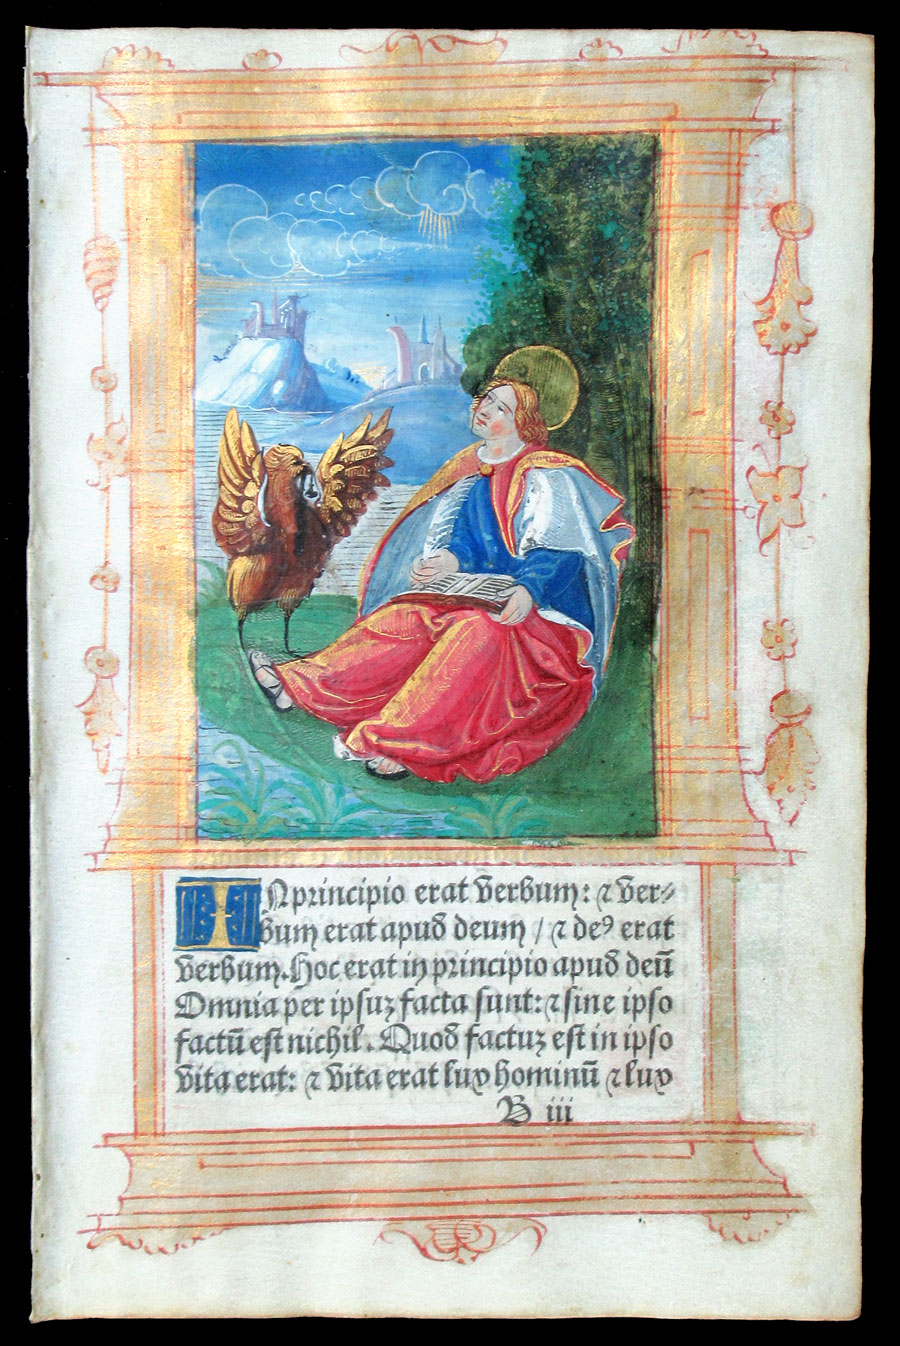 IN principio erat verbum: ⁊ ver⸗
bum erat apud deum / ⁊ deꝰ erat
verbum. Hoc erat in principio apud deū
Omnia per ipsuz facta sunt: ⁊ sine ipso
factū est nichil. Quod factuz est in ipso
vita erat: ⁊ vita erat lux hominū ⁊ lux
B iii